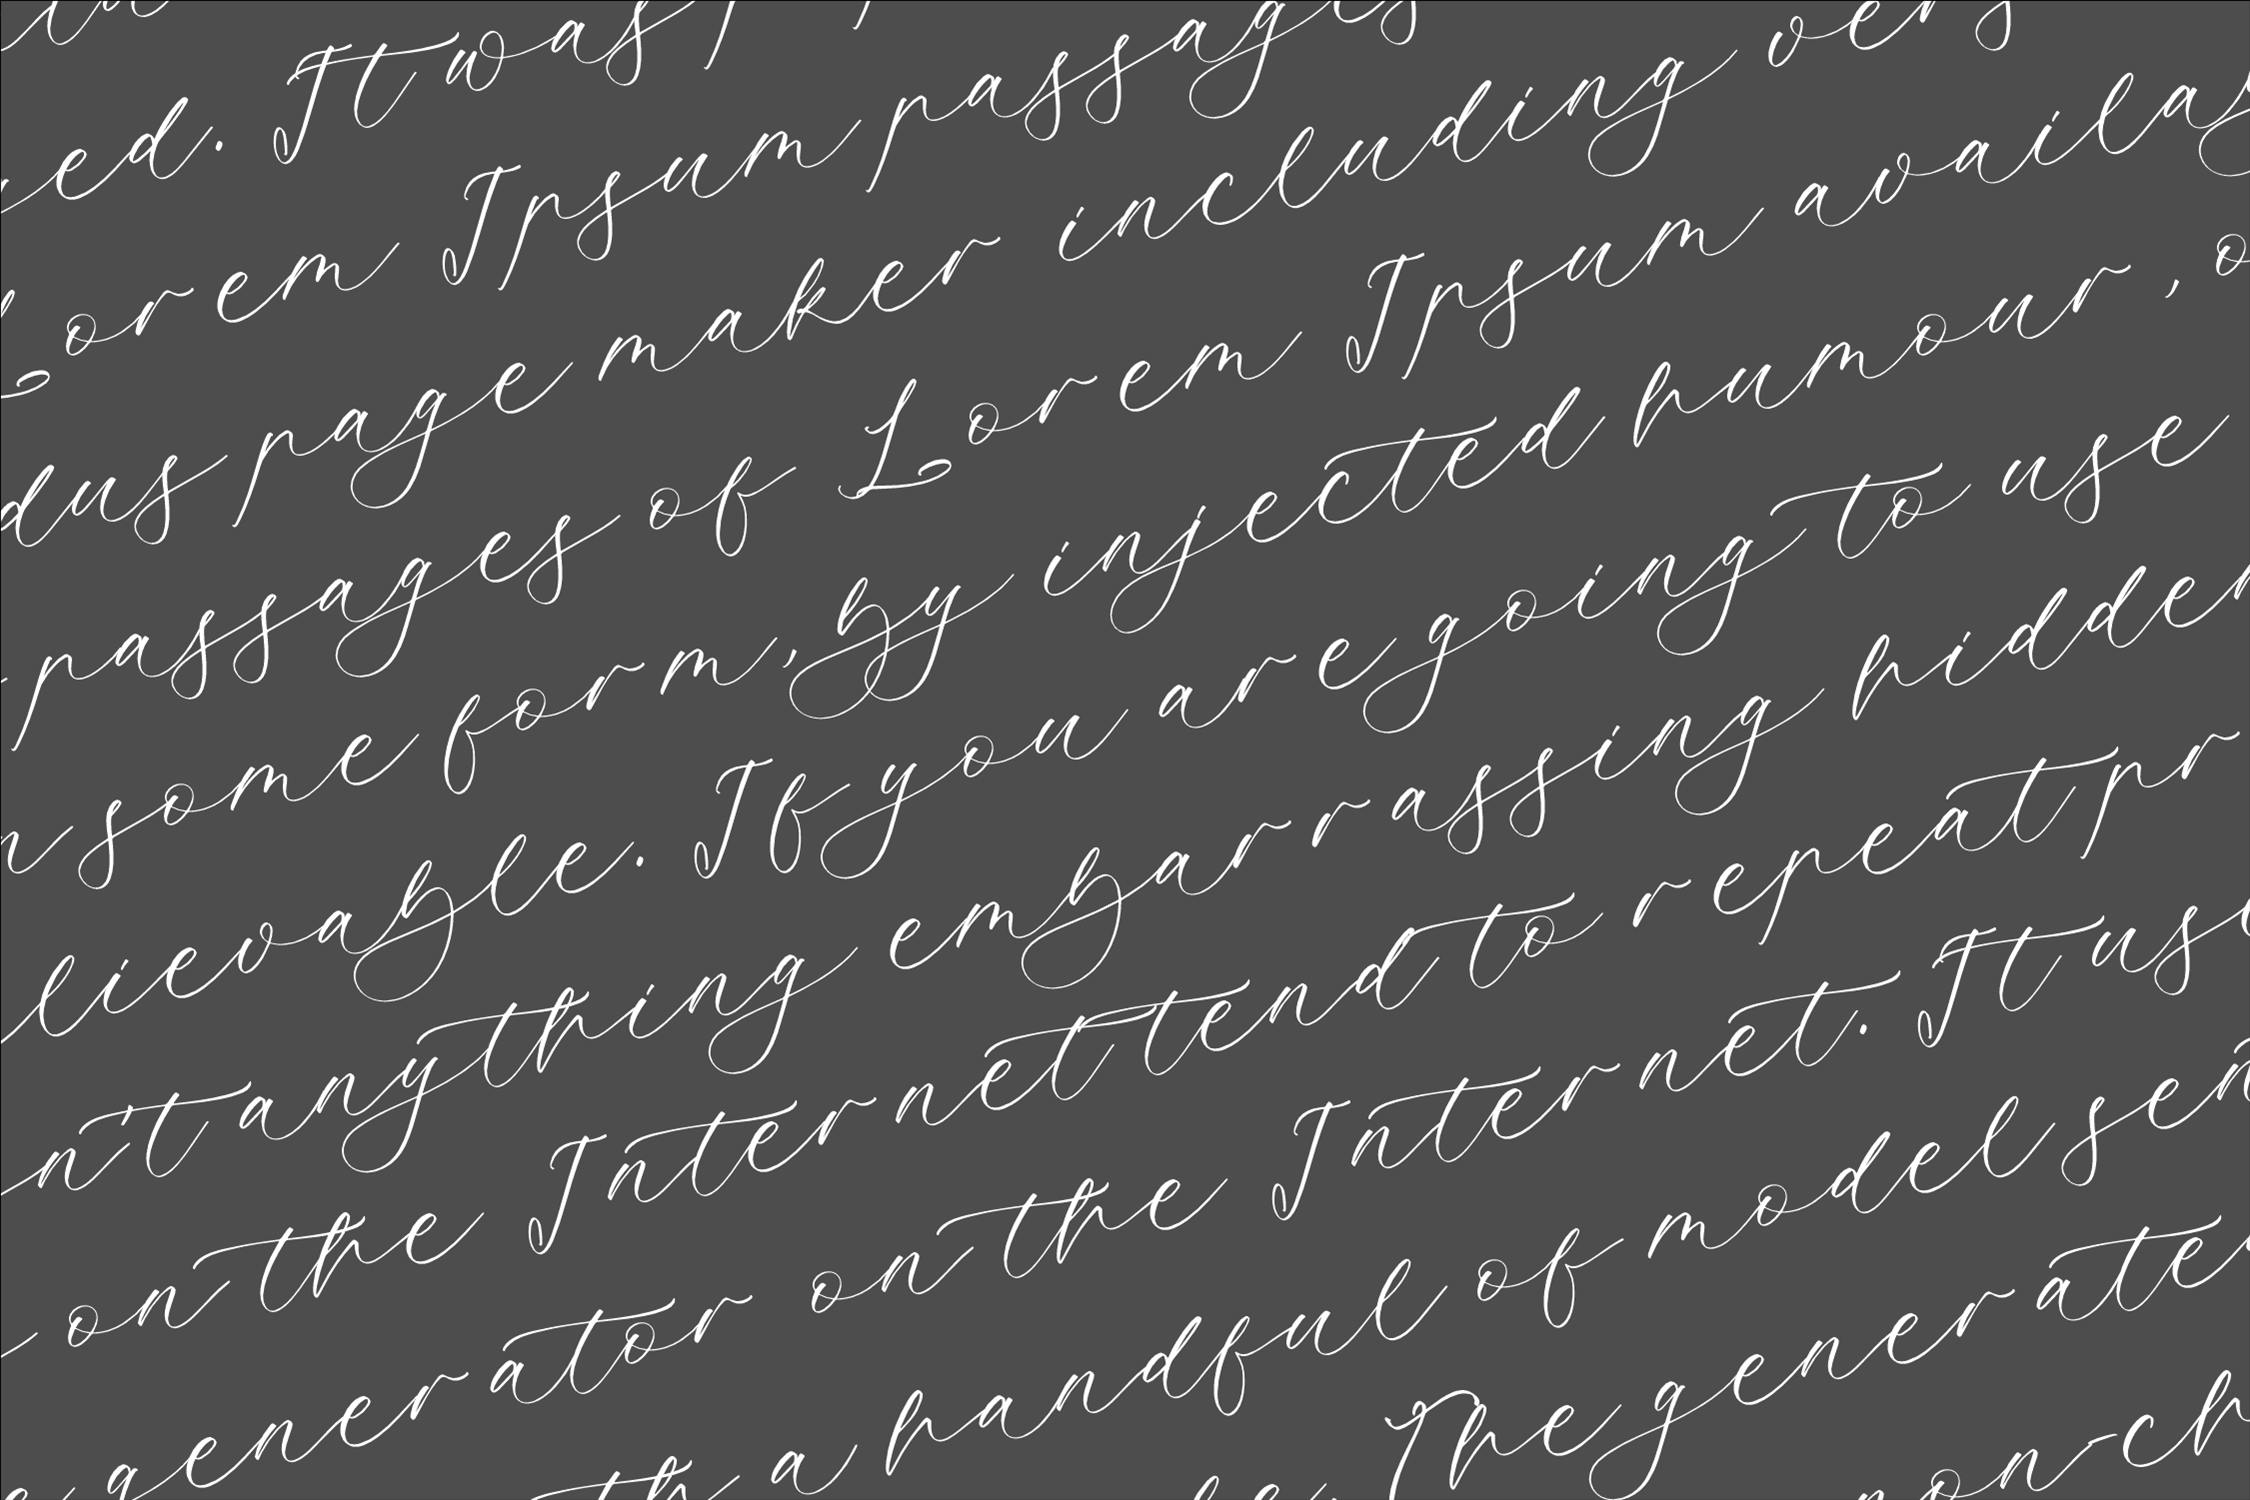 ed. It was
Lorem Ipsum passages
dus page maker including vers
passages of Lorem Ipsum availab
n some form, by injected humour, o
lievable. If you are going to use
n't anything embarrassing hidden
on the Internet tend to repeat pr
generator on the Internet. It us
th a handful of model sen
The generate
on-ch